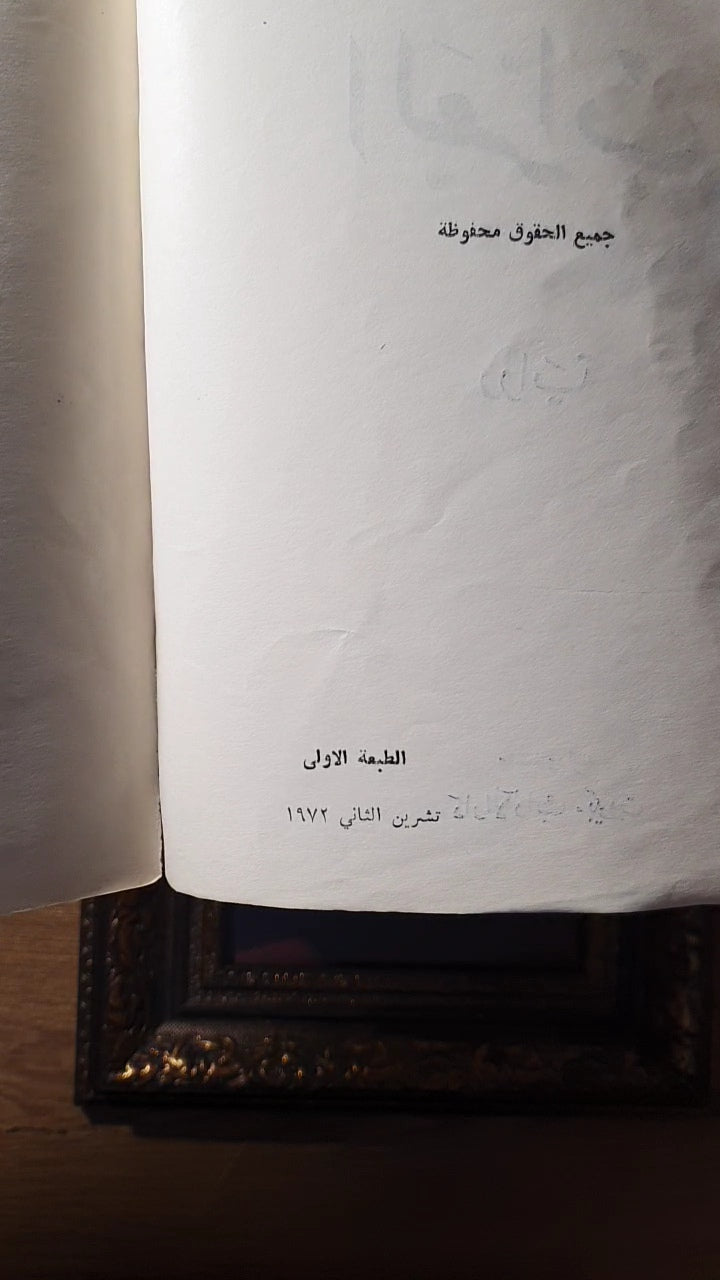 جميع الحقوق محفوظة
الطبعة الاولى
تشرين الثاني ١٩٧٢